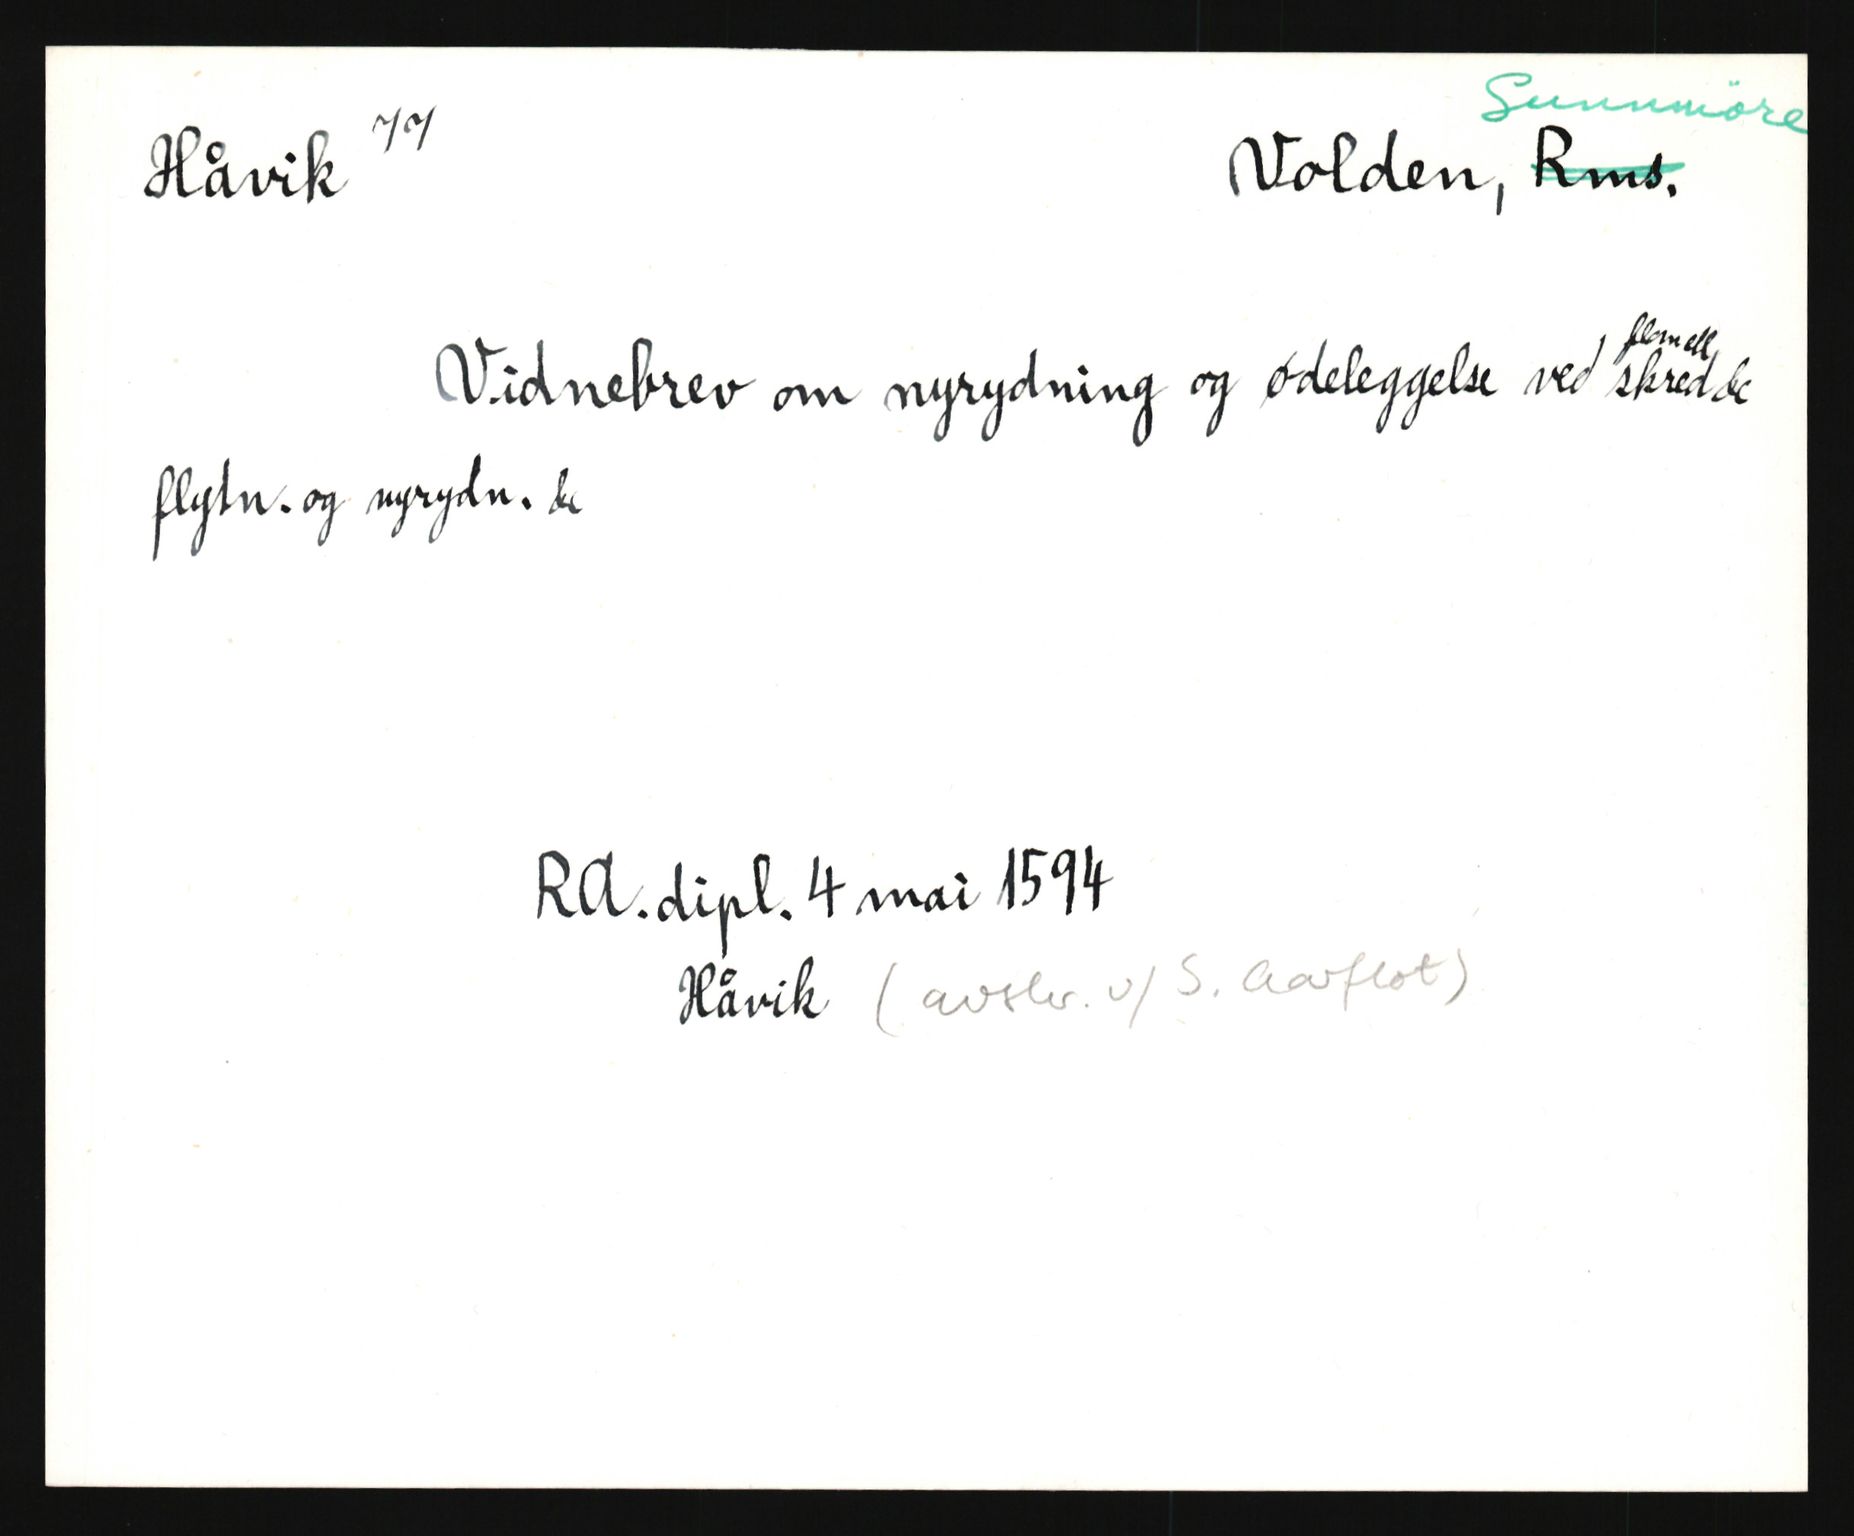 Sunnmöre
Håvik 77 Volden, Rms.
flom ell
Vidnebrev om nyrydning og ødeleggelse ved skred
flytn. og nyrydn.
RA. dipl. 4 mai 1594
Håvik (avskr. v/ S. Aarflot)